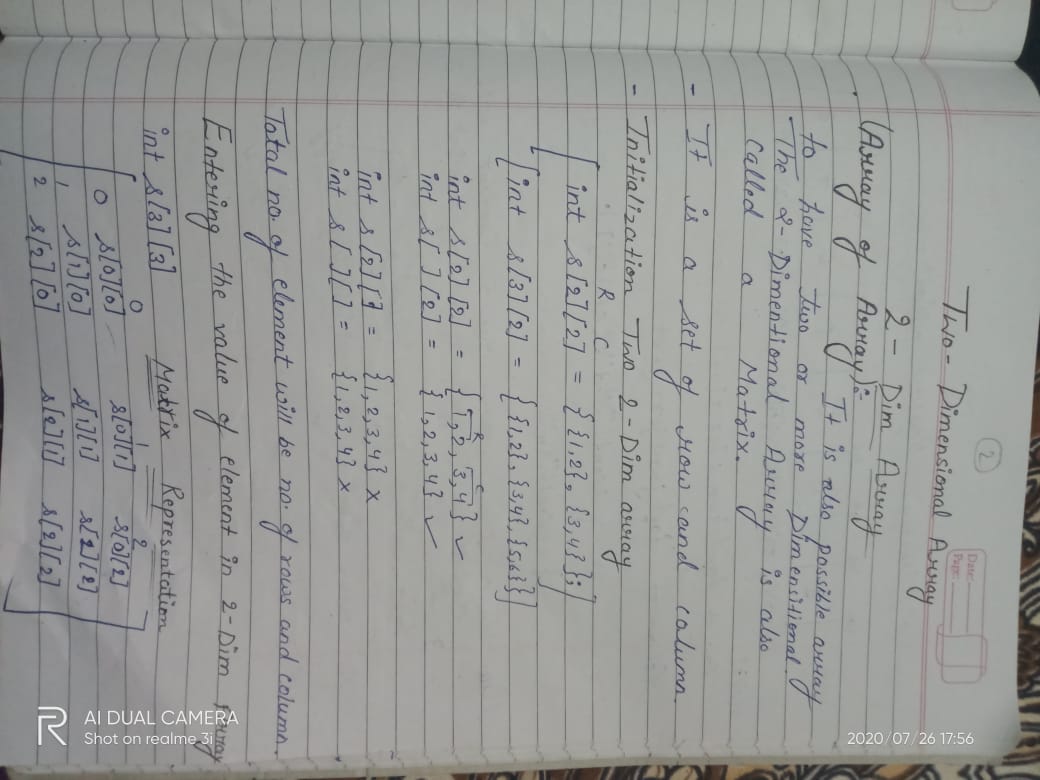 2
Date:
Page:
Two- Dimensional Array
2- Dim Array
(Array of Array):- It is also possible array
to have two or more Dimensitional.
The 2- Dimentional Array is also
called a Matrix.
- It is a set of row and column.
- Initialization Two 2-Dim array
R C
int s[2][2] = {{1,2}, {3,4}};
int s[3][2] = {{1,2},{3,4},{5,6}}
R C
int s[2][2] = {1,2,3,4} ✓
int s[ ][2] = {1,2,3,4} ✓
int s[2][ ] = {1,2,3,4} ×
int s[ ][ ] = {1,2,3,4} ×
Total no. of element will be no. of rows and column.
Entering the value of element in 2-Dim Array
int s[3][3] Matrix Representation
0 1 2
0 s[0][0] s[0][1] s[0][2]
1 s[1][0] s[1][1] s[1][2]
2 s[2][0] s[2][1] s[2][2]
R AI DUAL CAMERA
Shot on realme 3i
2020/07/26 17:56